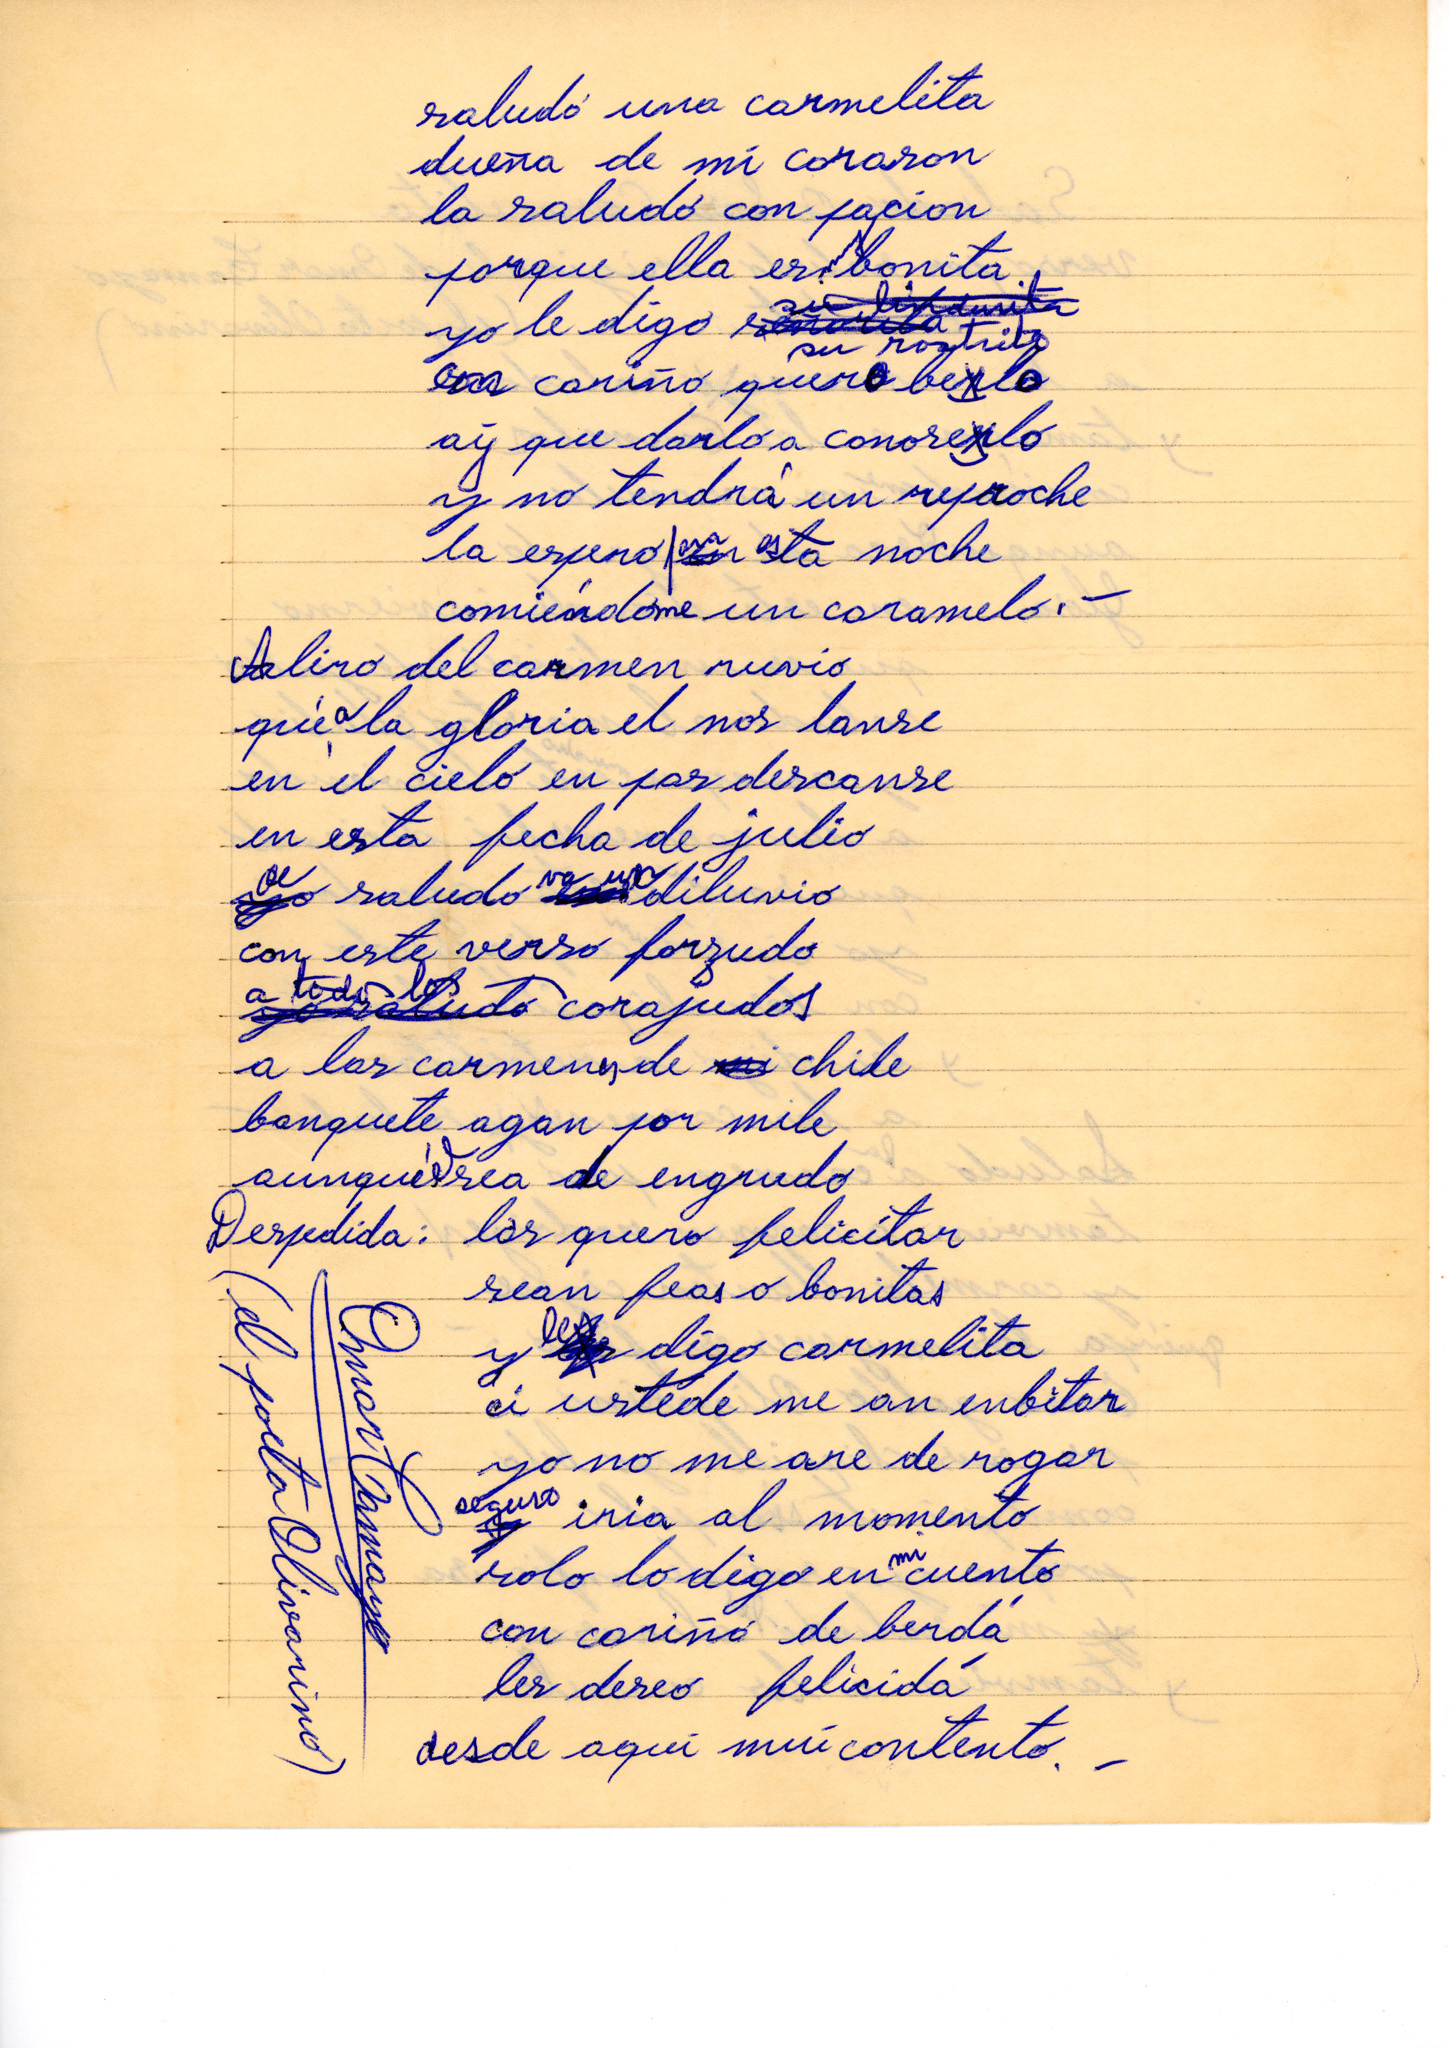 saludó una carmelita
dueña de mi corason
la saludó con pacion
porque ella es mi bonita
yo le digo su rostrito
con cariño quero berlo
ay que darlo a conoserlo
y no tendrá un reproche
la espero para esta noche
comiéndome un caramelo.-
Aliro del carmen ruvio
qué a la gloria el nos lanse
en el cielo en pas descanse
en esta fecha de julio
de saludo va un diluvio
con este verso forzudo
a todos los corajudos
a las carmenes de chile
banquete agan por mile
aunqué sea de engrudo
Despedida: las quero felicitar
sean feas o bonitas
y les digo carmelita
ci ustede me an enbitar
yo no me are de rogar
seguro iria al momento
solo lo digo en mi cuento
con cariño de berdá
les deseo felicidá
desde aqui mui contento. -
Omar Tamayo
(el poeta Olivarino)